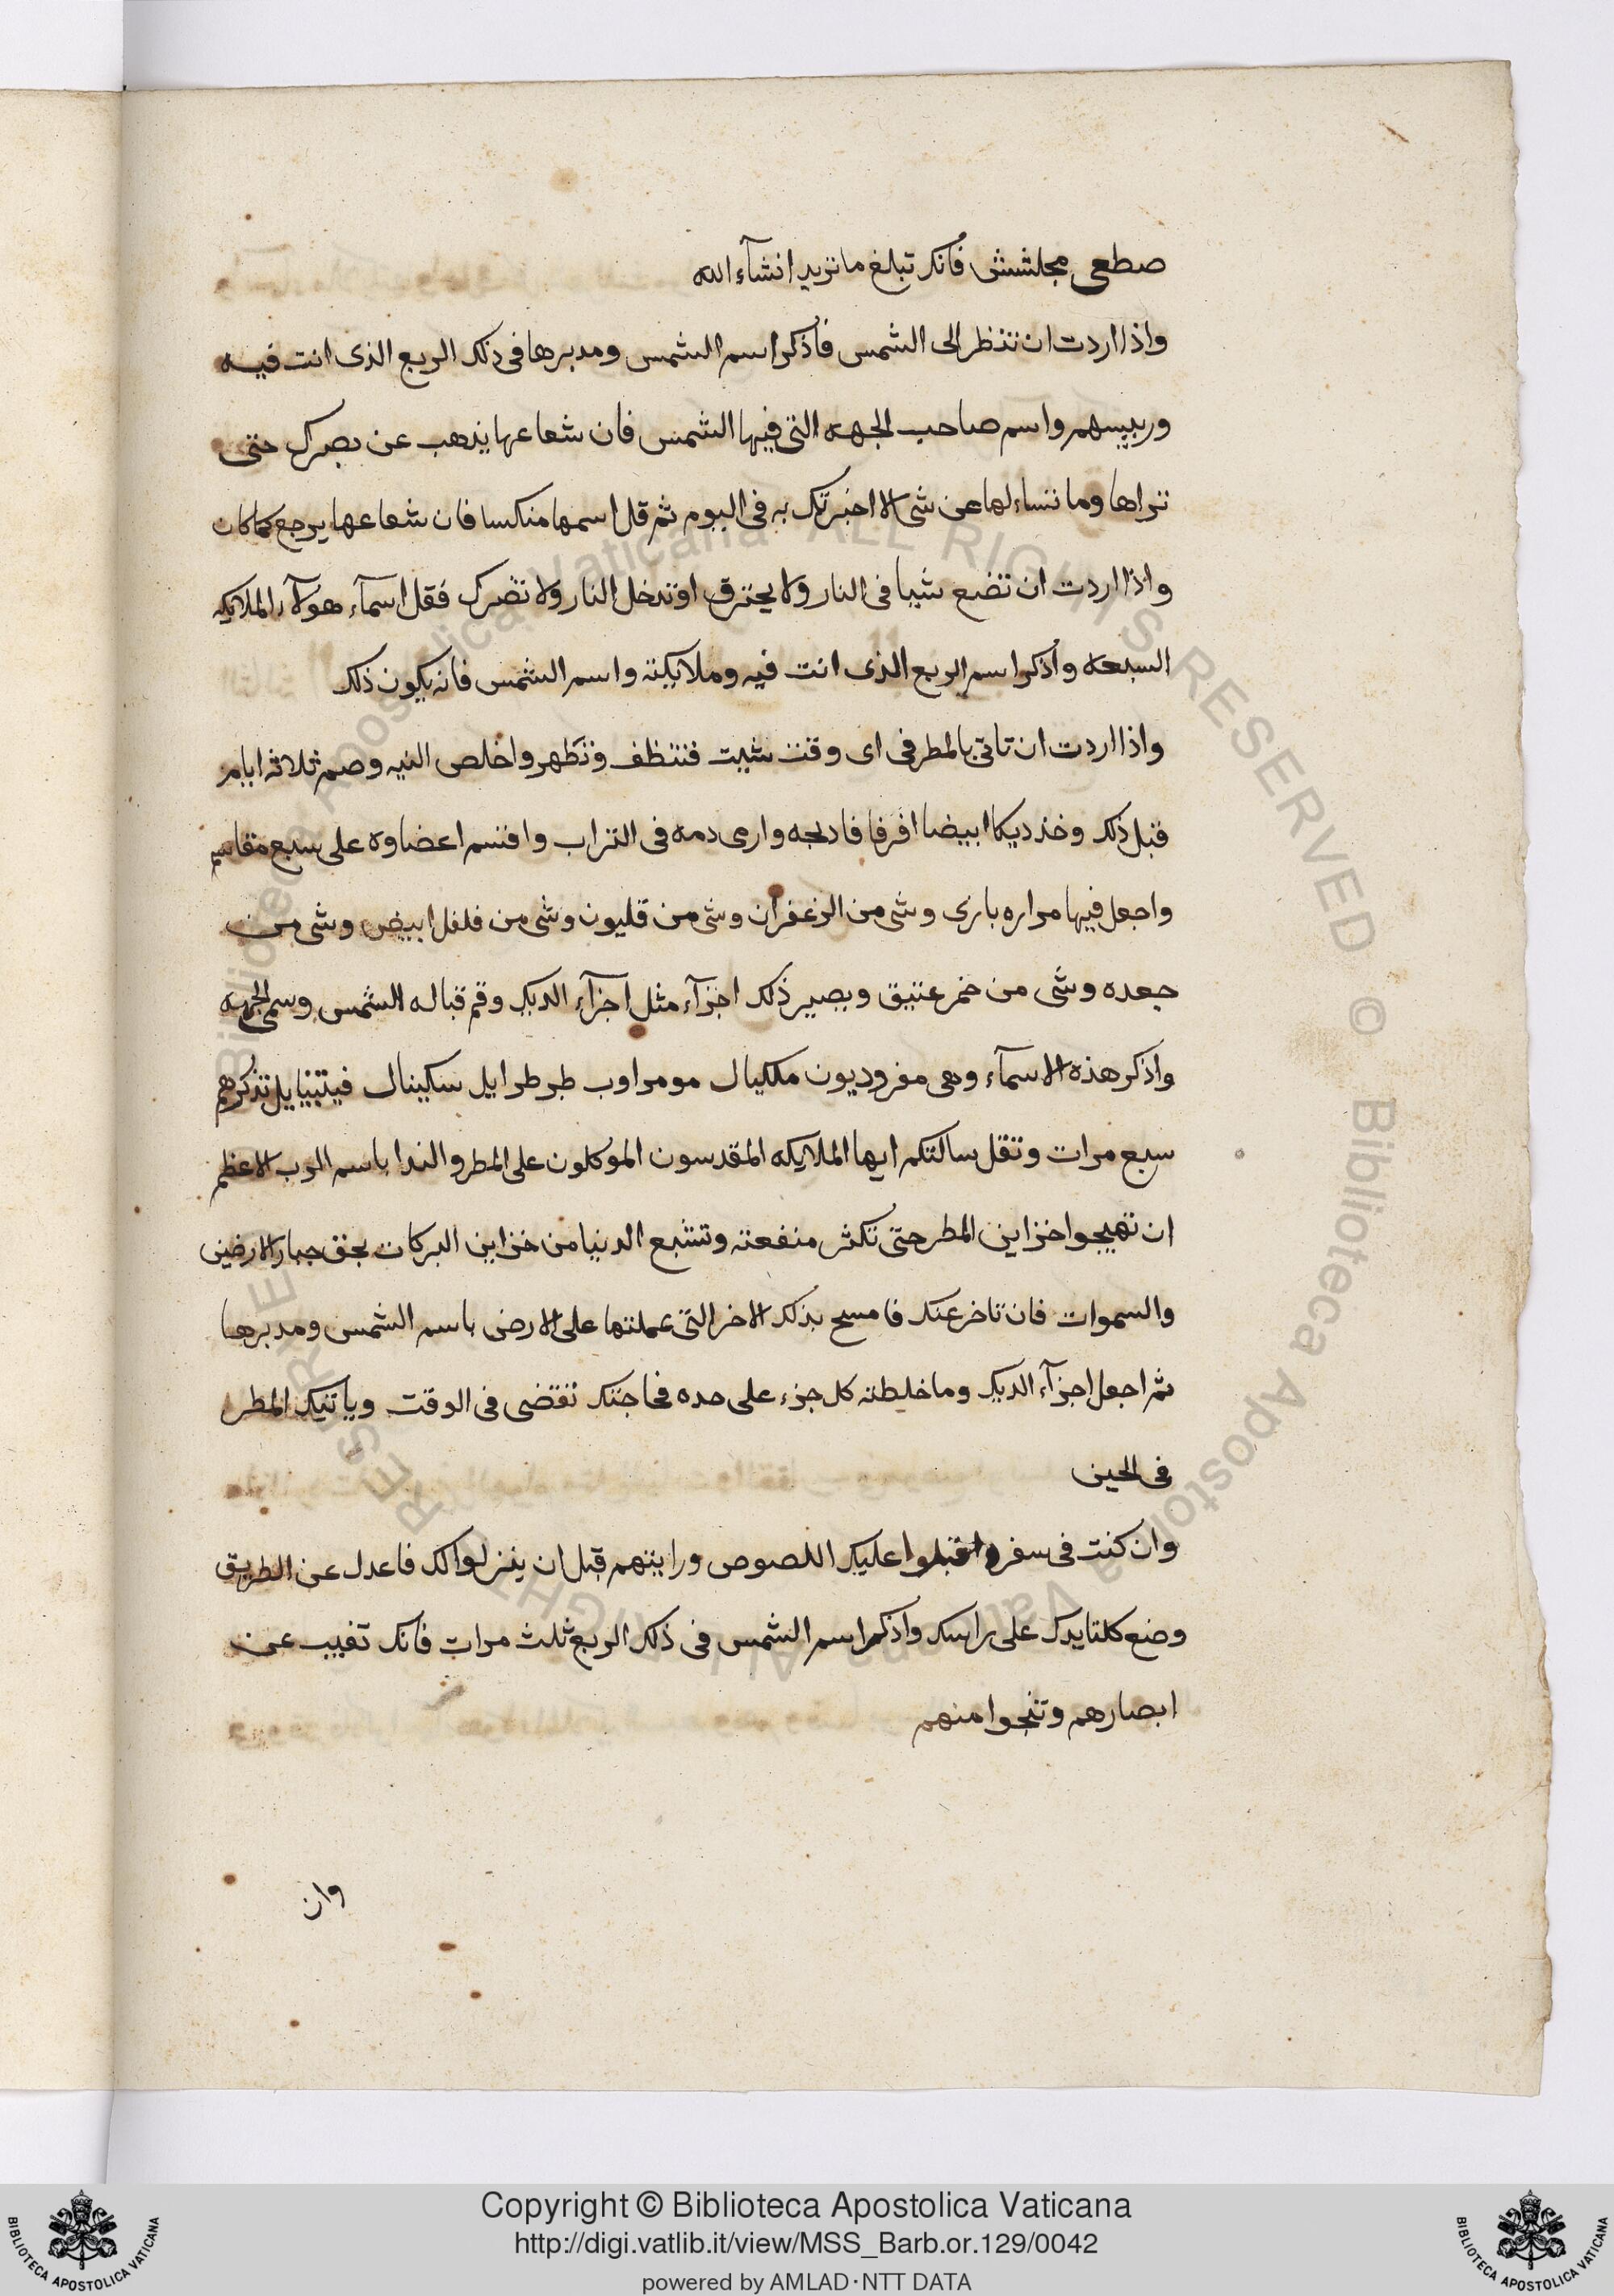 صطعى مجلشش فانك تبلغ ما تريد انشآء الله
واذا اردت ان تنظر الى الشمس فاذكر اسم الشمس ومدبرها فى ذلك الربع الذى انت فيه
وربيسهم واسم صاحب الجهه التى فيها الشمس فان شعاعها يذهب عن بصرك حتى
تراها وما تساءلها عن شى الا اخبرتك به فى اليوم ثم قل اسمها منكسا فان شعاعها يرجع كما كان
واذا اردت ان تضع شيا فى النار ولا يحترق او تدخل النار ولا تضرك فقل اسمآء هولآء الملايكه
السبعه واذكر اسم الربع الذى انت فيه وملايكته واسم الشمس فانه يكون ذلك
واذا اردت ان تاتى بالمطر فى اى وقت شيت فتنظف وتطهر واخلص النيه وصم ثلاثه ايام
قبل ذلك وخذ ديكا ابيضا افرقا فادبحه وارمى دمه فى التراب واقسم اعضاوه على سبع مقاسم
واجعل فيها مراره بازى وشى من الزعفران وشى من قليون وشى من فلفل ابيض وشى من
جعده وشى من خمر عتيق ويصير ذلك اجزآء مثل اجزآء الديك وقم قباله الشمس وسمى الجهه
واذكر هذه الاسمآء وهى مفروديون ملكيال مومراوب طرطرايل سكينال فيتبنايل تذكرهم
سبع مرات وتقل سالتكم ايها الملايكه المقدسون الموكلون على المطر والندا باسم الرب الاعظم
ان تهيجوا خزاين المطر حتى تكثر منفعته وتشبع الدنيا من خزاين البركات بحق جبار الارضين
والسموات فان تاخر عنك فامسح بذلك الاخر التى عملتها على الارض باسم الشمس ومدبرها
ثم اجعل اجزآء الديك وما خلطته كل جزء على حده فحاجتك تقتضى فى الوقت وياتيك المطر
فى الحين
وان كنت فى سفر واقبلوا عليك اللصوص ورايتهم قبل ان ينزلوا لك فاعدل عن الطريق
وضع كلتا يدك على راسك واذكر اسم الشمس فى ذلك الربع ثلث مرات فانك تغيب عن
ابصارهم وتنجوا منهم
وان
Copyright © Biblioteca Apostolica Vaticana
http://digi.vatlib.it/view/MSS_Barb.or.129/0042
powered by AMLAD·NTT DATA